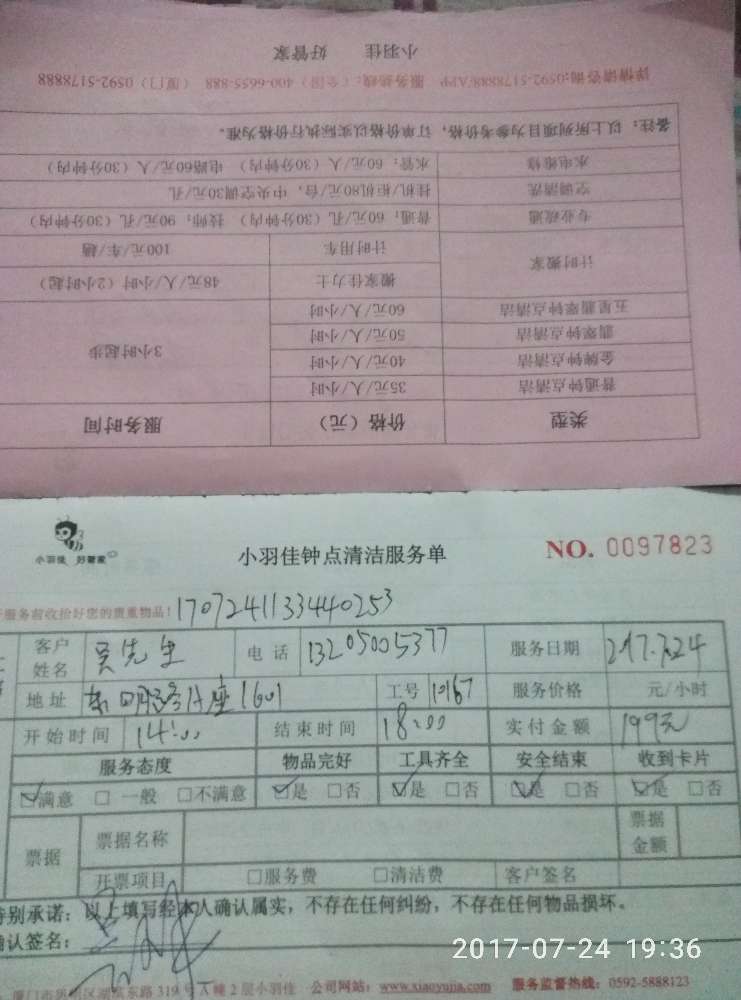 小羽佳 好管家
详情请咨询:0592-5178888/APP 服务热线:(全国) 400-6655-888 (厦门) 0592-5178888
类型 价格(元) 服务时间
普通钟点清洁 35元/人/小时 3小时起步
金牌钟点清洁 40元/人/小时
翡翠钟点清洁 50元/人/小时
五星翡翠钟点清洁 60元/人/小时
计时搬家 搬家佳力士 48元/人/小时(2小时起)
计时用车 100元/车/趟
专业疏通 普通:60元/孔(30分钟内) 技师:90元/孔(30分钟内)
空调清洗 挂机/柜机80元/台,中央空调30元/孔
水电维修 水管:60元/人(30分钟内) 电路60元/人(30分钟内)
备注:以上所列项目为参考价格,订单价格以实际执行价格为准。
小羽佳 好管家
小羽佳钟点清洁服务单
NO. 0097823
服务前收拾好您的贵重物品!
1707241133440253
客户姓名 吴先生 电话 13205005377 服务日期 2017.7.24
地址 座1601 工号 10167 服务价格 元/小时
开始时间 14:00 结束时间 18:00 实付金额 199元
服务态度 物品完好 工具齐全 安全结束 收到卡片
☑满意 □一般 □不满意 ☑是 □否 ☑是 □否 ☑是 □否 ☑是 □否
票据 票据名称 票据金额
开票项目 □服务费 □清洁费 客户签名
特别承诺:以上填写经本人确认属实,不存在任何纠纷,不存在任何物品损坏。
确认签名:
2017-07-24 19:36
东路319号A幢2层小羽佳 公司网站:www.xiaoyujia.com 服务监督热线:0592-5888123